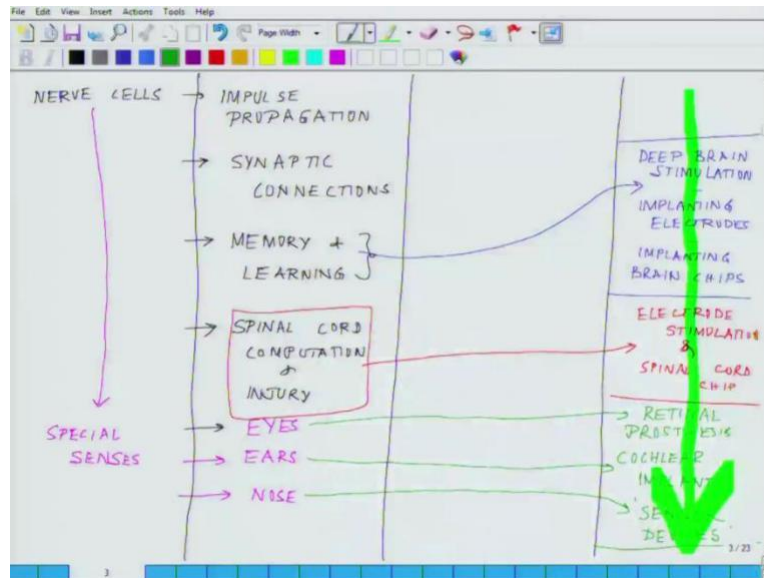 File Edit View Insert Actions Tools Help
Page Width
NERVE CELLS → IMPULSE
PROPAGATION
→ SYNAPTIC
CONNECTIONS
→ MEMORY +
LEARNING
→ SPINAL CORD
COMPUTATION
&
INJURY
SPECIAL
SENSES
→ EYES
→ EARS
→ NOSE
DEEP BRAIN
STIMULATION
IMPLANTING
ELECTRODES
IMPLANTING
BRAIN CHIPS
ELECTRODE
STIMULATION
&
SPINAL CORD
CHIP
RETINAL
PROSTHESIS
COCHLEAR
IMPLANT
DEVICES
3/23
3